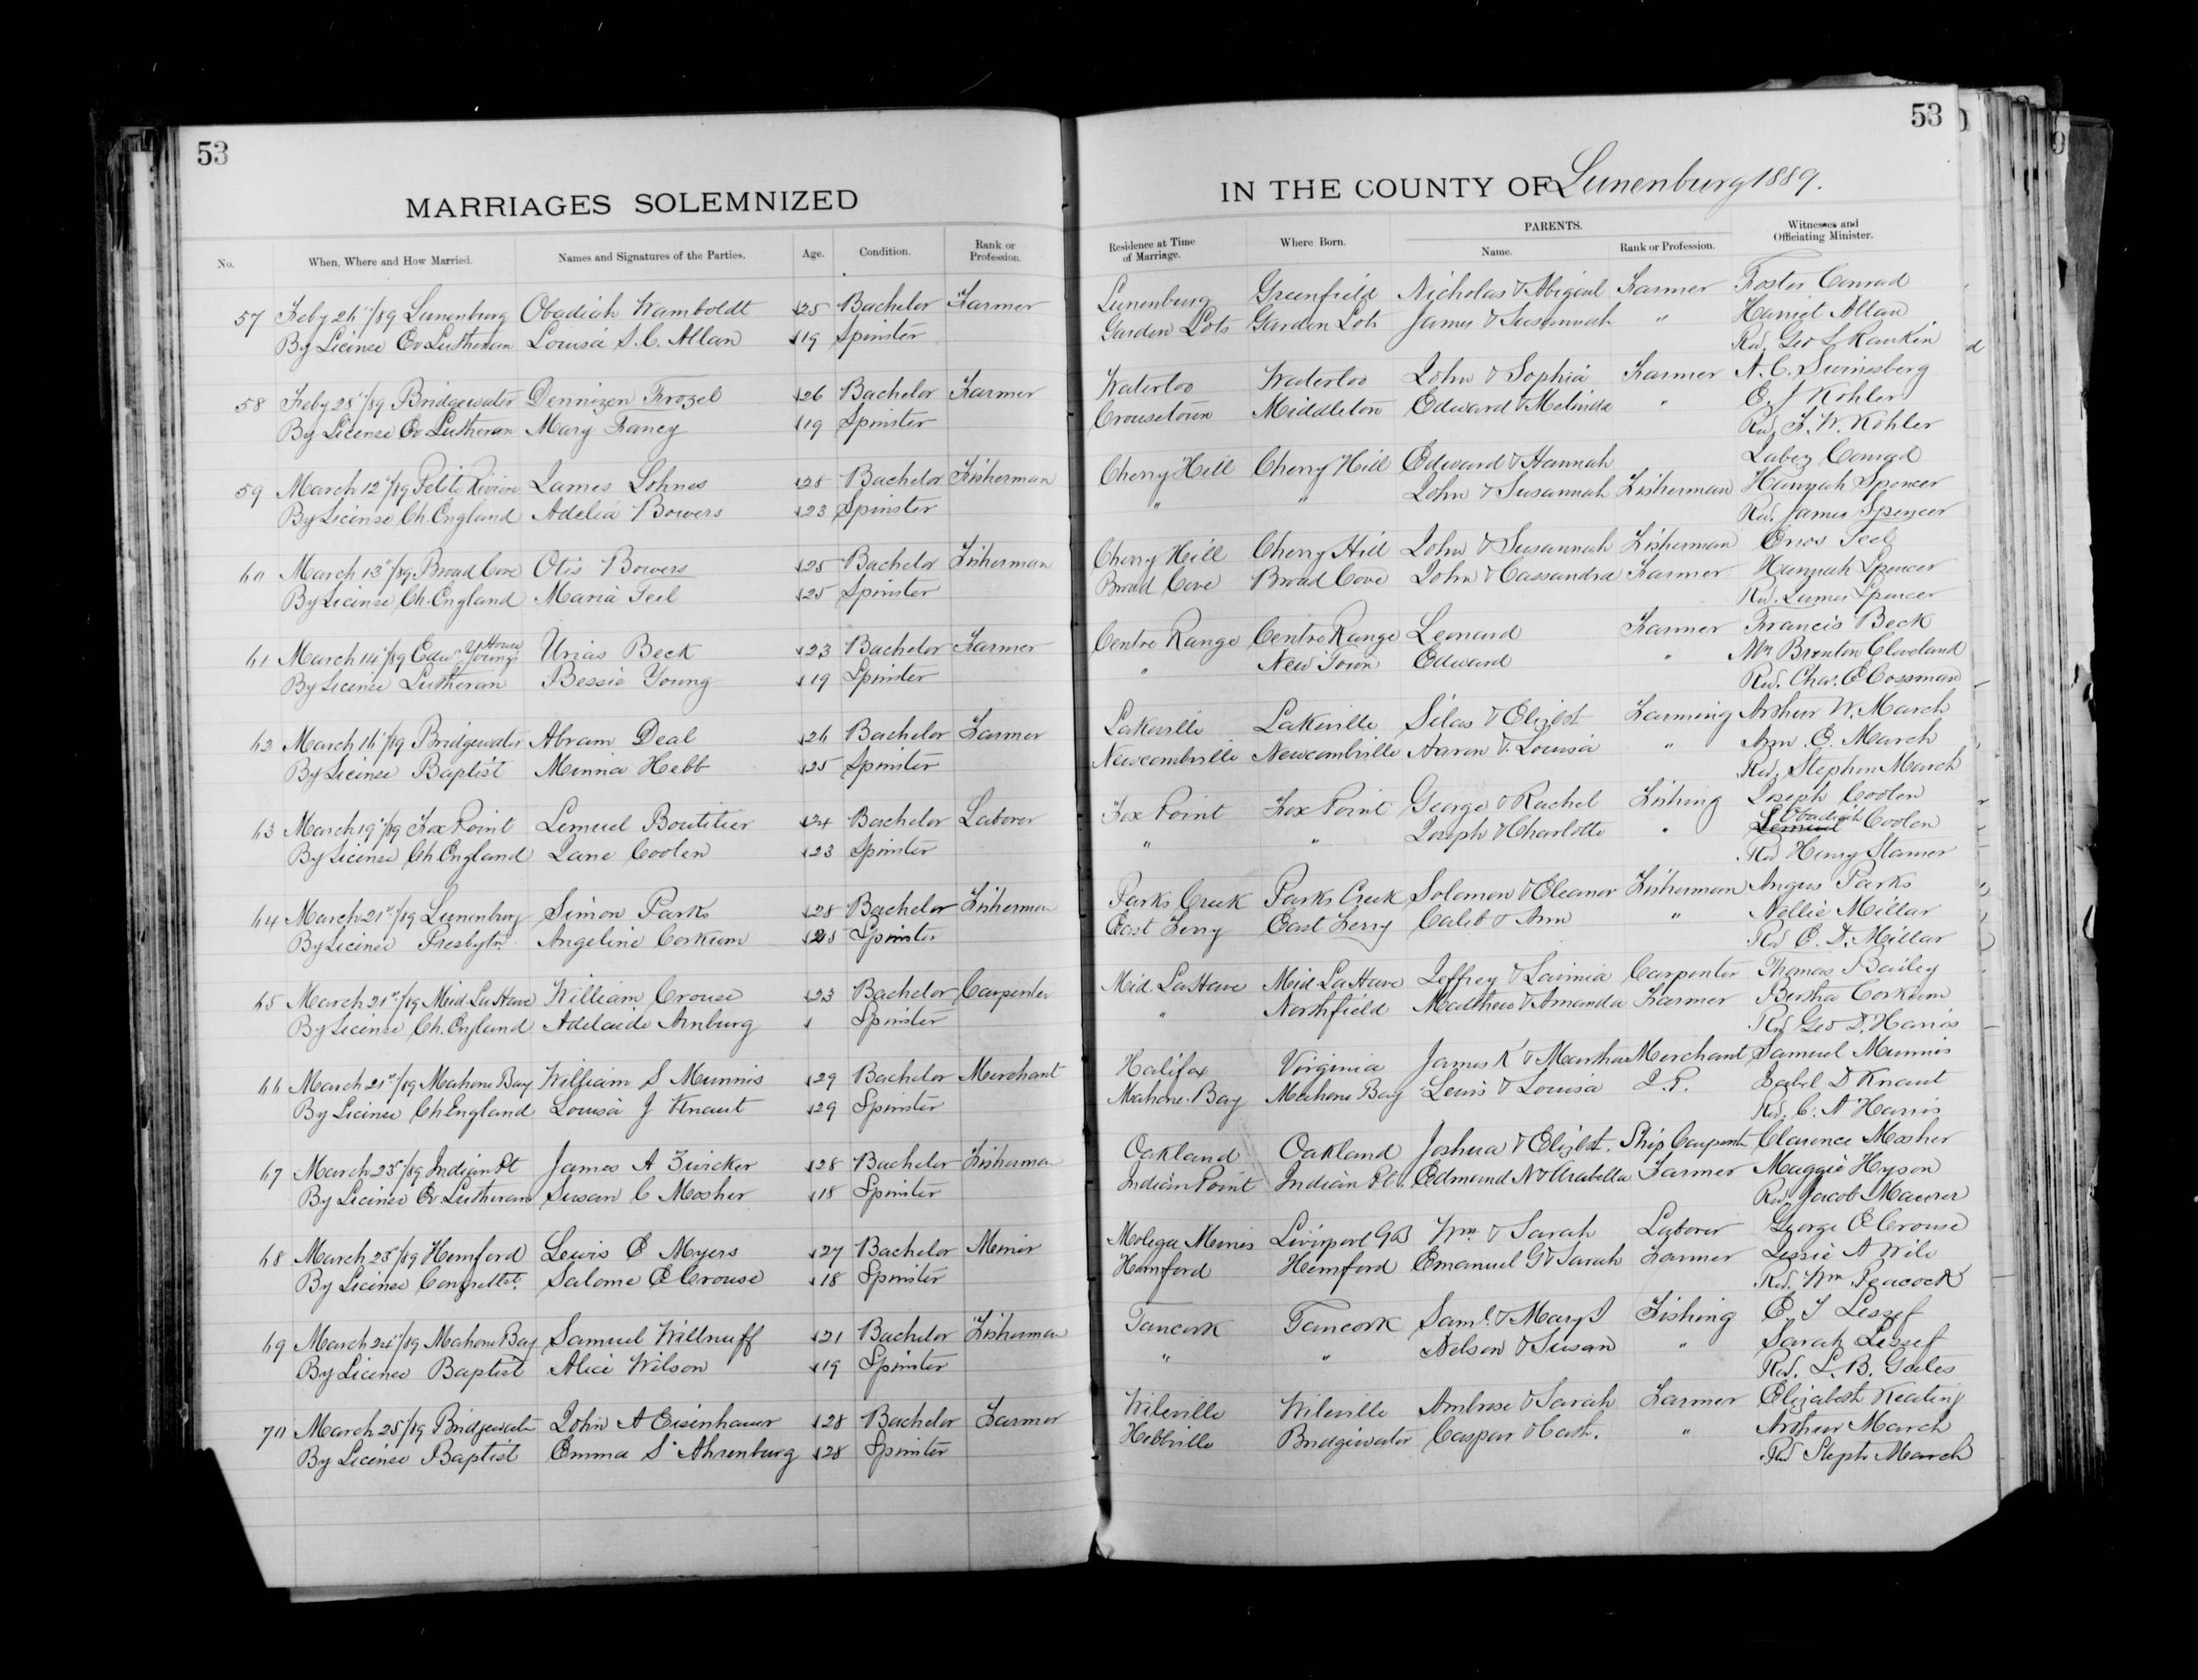 53
53
MARRIAGES SOLEMNIZED
IN THE COUNTY OF Lunenburg 1889.
No. When, Where and How Married. Names and Signatures of the Parties. Age. Condition. Rank or Profession. Residence at Time of Marriage. Where Born. PARENTS. Name. Rank or Profession. Witnesses and Officiating Minister.
57 Feby 26"/89 Lunenburg Obadiah Wamboldt 25 Bachelor Farmer Lunenburg Greenfield Nicholas & Abigail Farmer Foster Conrad
By License Ev Lutheran Louisa S. C. Allan 19 Spinster Garden Lots Garden Lots James & Susannah " Harriet Allan
Rev. Geo L Rankin
58 Feby 28"/89 Bridgewater Dennizen Frozel 26 Bachelor Farmer Waterloo Waterloo John & Sophia Farmer A. C. Swinesberg
By License Ev Lutheran Mary Fancy 19 Spinster Crousetown Middleton Edward & Melinda " E. J Kohler
Rev. F. W. Kohler
59 March 12"/89 Petite Riviere James Lohnes 28 Bachelor Fisherman Cherry Hill Cherry Hill Edward & Hannah Jabez Conrad
By License Ch. England Adelia Bowers 23 Spinster " " John & Susannah Fisherman Hannah Spencer
Rev. James Spencer
60 March 13"/89 Broad Cove Otis Bowers 25 Bachelor Fisherman Cherry Hill Cherry Hill John & Susannah Fisherman Enos Teel
By License Ch. England Maria Teel 25 Spinster Broad Cove Broad Cove John & Cassandra Farmer Hannah Spencer
Rev. James Spencer
61 March 14"/89 Edw. Young's House Urias Beck 23 Bachelor Farmer Centre Range Centre Range Leonard Farmer Francis Beck
By License Lutheran Bessie Young 19 Spinster " New Town Edward " Mrs Brenton Cleveland
Rev. Chas. E Cossman
62 March 16"/89 Bridgewater Abram Deal 26 Bachelor Farmer Lakeville Lakeville Silas & Elizbt. Farming Arthur W. March
By License Baptist Minnie Hebb 25 Spinster Newcombville Newcombville Aaron & Louisa " Ann E. March
Rev. Stephen March
63 March 19"/89 Fox Point Lemuel Boutilier 24 Bachelor Laborer Fox Point Fox Point George & Rachel Fishing Joseph Coolen
By License Ch. England Jane Coolen 23 Spinster " " Joseph & Charlotte " Obadiah Coolen
Rev Henry Stamer
64 March 21st/89 Lunenburg Simon Parks 28 Bachelor Fisherman Parks Creek Parks Creek Solomon & Eleanor Fisherman Angus Parks
By License Presbytn. Angeline Corkum 25 Spinster East Ferry East Ferry Caleb & Ann " Nellie Millar
Rev E. D. Millar
65 March 21st/89 Mid. LaHave William Crouse 23 Bachelor Carpenter Mid. LaHave Mid. LaHave Jeffrey & Lavinia Carpenter Thomas Bailey
By License Ch. England Adelaide Arnburg Spinster " Northfield Matthew & Amanda Farmer Bertha Corkum
Rev Geo D. Harris
66 March 21st/89 Mahone Bay William S Munnis 29 Bachelor Merchant Halifax Virginia James K & Martha Merchant Samuel Munnis
By License Ch England Louisa J Knaut 29 Spinster Mahone Bay Mahone Bay Lewis & Louisa J. P. Isabel D Knaut
Rev. C. A Harris
67 March 23"/89 Indian Pt James A Zwicker 28 Bachelor Fisherman Oakland Oakland Joshua & Elizbt. Ship Carpentr Clarence Mosher
By License Ev Lutheran Susan C Mosher 18 Spinster Indian Point Indian Pt. Edmund N & Arabella Farmer Maggie Hyson
Rev. Jacob Maurer
68 March 23"/89 Hemford Lewis E Myers 27 Bachelor Miner Molega Mines Liverpool GB Wm & Sarah Laborer George E Crouse
By License Congrettl. Salome E Crouse 18 Spinster Hemford Hemford Emanuel G & Sarah Farmer Lessie A Wile
Rev. Wm Peacock
69 March 24"/89 Mahone Bay Samuel Willnuff 21 Bachelor Fisherman Tancook Tancook Saml. & Mary S Fishing
By License Baptist Alice Wilson 19 Spinster " " Nelson & Susan " Sarah
Rev. L. B. Gates
70 March 25/89 Bridgewater John A Eisenhauer 28 Bachelor Farmer Wileville Wileville Ambrose & Sarah Farmer Elizabeth Keating
By License Baptist Emma S Ahrenburg 28 Spinster Hebbville Bridgewater Caspar & Cath. " Arthur March
Rev Steph March